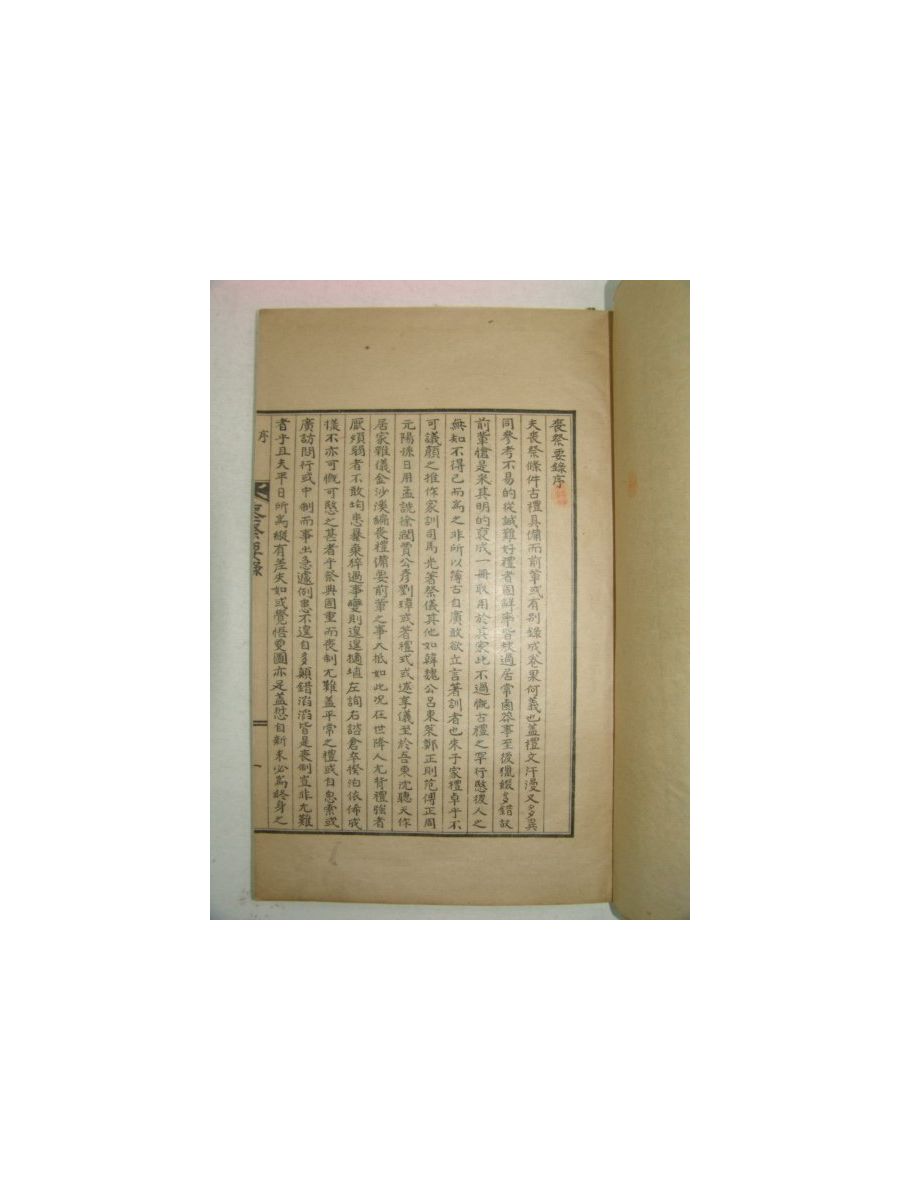 喪祭要錄序
夫喪祭條件古禮具備而前輩或有別錄成卷果何義也盖禮文汗漫又多異
同參考不易的從誠難好禮者固鮮率皆放過居常鹵莽事至後獵掇多錯故
前輩愴是采其明的裒成一冊取用於其家此不過慨古禮之罕行愍後人之
無知不得已而為之非所以簿古自廣敢欲立言著訓者也朱子家禮卓乎不
可議顏之推作家訓司馬光著祭儀其他如韓魏公呂東萊鄭正則范傳正周
元陽孫日用孟詵徐潤賈公彥劉璋或著禮式或述享儀至於吾東沈聽天作
居家雜儀金沙溪編喪禮備要前輩之事大抵如此况在世降人尤背禮強者
厭煩弱者不敢均患暴棄猝過事變則遑遑擿埴左詢右諮倉卒揆泊依俙成
樣不亦可慨可愍之甚者乎祭典固重而喪制尤難盖平常之禮或自思索或
廣訪問行或中制而事出急遽例患不遑自多顛錯滔滔皆是喪制豈非尤難
者乎且夫平日所為縱有差失如或覺悟更圖亦足盖愆自新未必為終身之
序
一